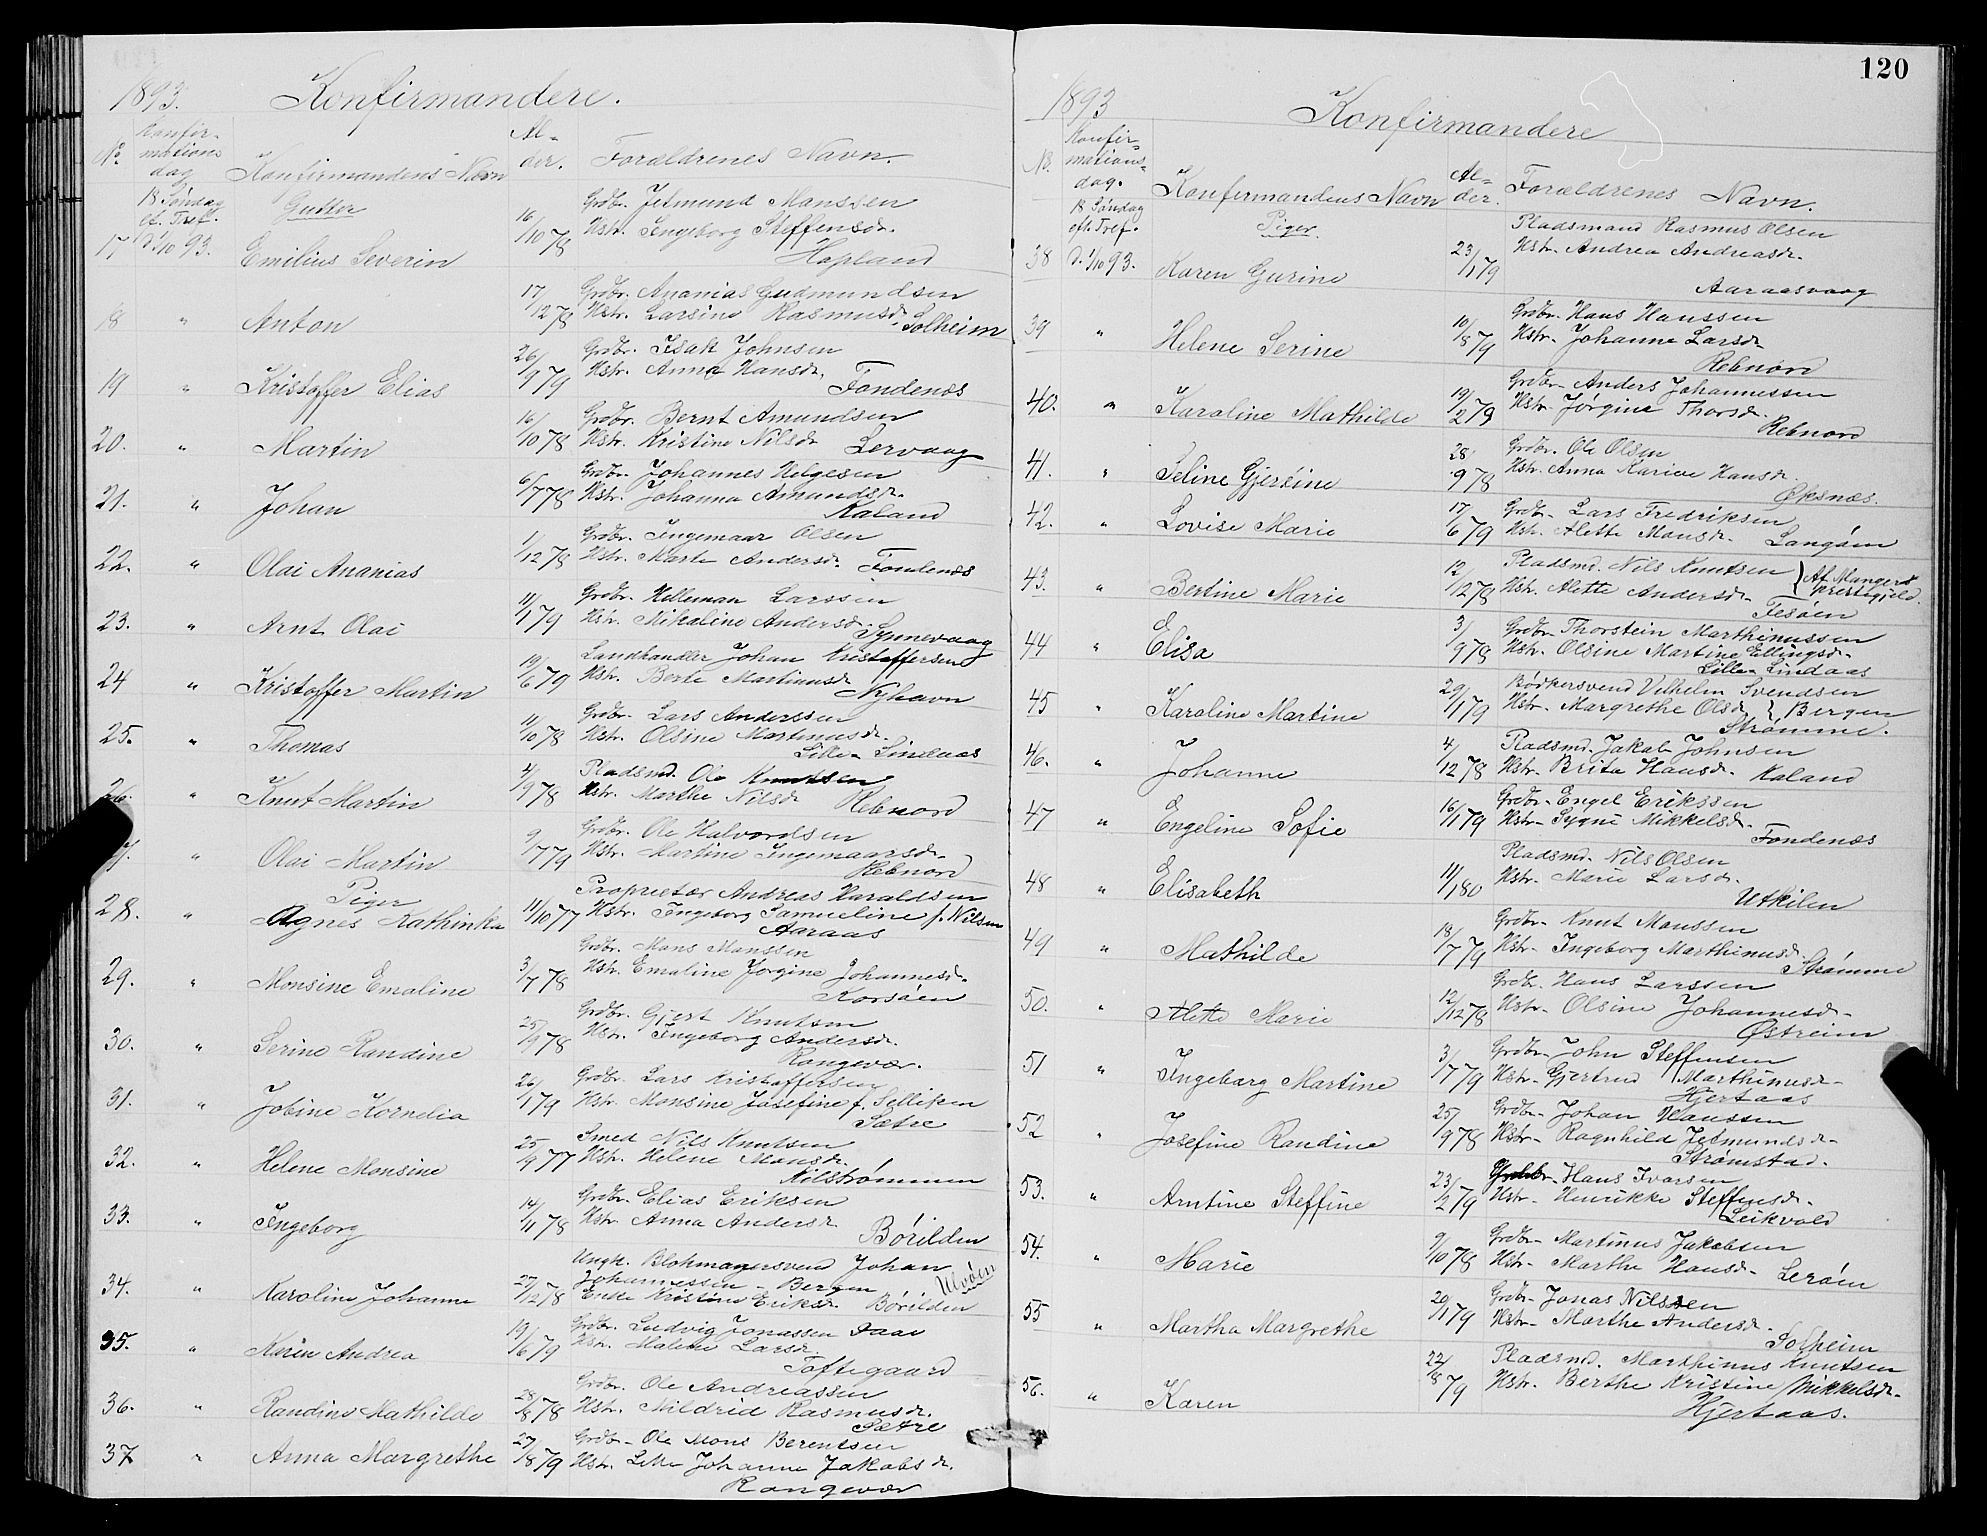 1893.
Konfirmandere.
No.
Konfir-
mations
dag
Konfirmandens Navn
Al-
der.
Forældrenes Navn.
18 Søndag
ef. Tref.
Gutter
17 d. 1/10 93. Emilius Severin 16/10 78 Grdbr. Jetmund Monssen
Hstr. Ingeborg Steffensdr.
Hopland
18 " Anton 17/12 78 Grdbr. Ananias Gudmundsen
Hstr. Larsine Rasmusdr. Solheim
19 " Kristoffer Elias 26/9 79 Grdbr. Isak Johnsen
Hstr. Anna Hansdr.
Fondenæs
20. " Martin 16/10 78 Grdbr. Bernt Amundsen
Hstr. Kristine Nilsdr. Lervaag
21. " Johan 6/7 78 Grdbr. Johannes Helgesen
Hstr. Johanna Amundsdr.
Kaland
22. " Olai Ananias 1/12 78 Grdbr. Ingemaar Olsen
Hstr. Marte Andersdr. Fondenæs
23. " Arnt Olai 11/1 79 Grdbr. Helleman Larssen
Hstr. Mikaline Andersdr.
Synnevaag
24 " Kristoffer Martin 19/6 79 Landhandler Johan Kristoffersen
Hstr. Berte Martinusdr.
Nyhavn
25. " Thomas 11/10 78 Grdbr. Lars Anderssen
Hstr. Olsine Martinusdr.
Lille-Lindaas
26. " Knut Martin 4/9 78 Pladsmd. Ole Knutsen
Hstr. Marthe Nilsdr. Rebnord
27. " Olai Martin 9/7 79 Grdbr. Ole Halvordsen
Hstr. Martine Ingemaarsdr.
Rebnord
Piger
28. " Agnes Kathinka 11/10 77 Proprietær Andreas Haraldsen
Hstr. Ingeborg Samueline f. Nilsen
Aaraas
29. " Monsine Emaline 3/7 78 Grdbr. Mons Monssen
Hstr. Emaline Jørgine Johannesdr.
Korsøen
30. " Serine Randine 25/9 78 Grdbr. Gjert Knutsen
Hstr. Ingeborg Andersdr.
Rongevær.
31. " Jobine Kornelia 26/1 79 Grdbr. Lars Kristoffersen
Hstr. Monsine Josefine f. Selliken
Sætre
32. " Helene Monsine 25/9 77 Smed Nils Knutsen
Hstr. Helene Monsdr.
Nilstrømmen
33. " Ingeborg 14/11 78 Grdbr. Elias Eriksen
Hstr. Anna Andersdr.
Børilden
34. " Karoline Johanne 27/12 78 Ungk. Blokmagersvend Johan
Johannessen - Bergen
Enke Kristine Eriksdr. Børilden
Ulvøen
35. " Karen Andrea 19/6 79 Grdbr. Ludvig Jonassen Daae
Hstr. Malene Larsdr.
Toftegaard
36. " Randine Mathilde 28/8 78 Grdbr. Ole Andreassen
Hstr. Mildrid Rasmusdr.
Sætre
37 " Anna Margrethe 27/8 79 Grdbr. Ole Mons Berentsen
Hstr. Lette Johanne Jakobsdr.
Rongevær
120
1893
Konfirmandere
No.
Konfir-
mations-
dag.
Konfirmandens Navn
Al-
der.
Forældrenes Navn.
18 Søndag
eft. Tref.
Piger.
38 d. 1/10 93. Karen Gurine 23/1 79 Pladsmand Rasmus Olsen
Hstr. Andrea Andreasdr.
Aaraasvaag
39 " Helene Serine 10/8 79 Grdbr. Hans Hanssen
Hstr. Johanne Larsdr.
Rebnord
40. " Karoline Mathilde 19/2 79 Grdbr. Anders Johannessen
Hstr. Jørgine Thorsdr.
Rebnord
41. " Seline Gjersine 28/9 78 Grdbr. Ole Olsen
Hstr. Anna Karine Hansdr.
Øksnæs.
42. " Lovise Marie 17/6 79 Grdbr. Lars Fredriksen
Hstr. Alette Monsdr. Langøen
43. " Bertine Marie 12/12 78 Pladsmd. Nils Knutsen } Af Mangers
Hstr. Alette Andersdr. } præstegjeld.
Fesøen
44 " Elisa 3/9 78 Grdbr. Thorstein Marthinussen
Hstr. Olsine Martine Ellingsdr.
Lille-Lindaas
45 " Karoline Martine 29/1 79 Bødkersvend Vilhelm Svendsen
Hstr. Margrethe Olsdr. } Bergen
Strømme.
46. " Johanne 4/12 78 Pladsmd. Jakob Johnsen
Hstr. Brita Hansdr. Kaland
47 " Engeline Sofie 16/1 79 Grdbr. Engel Erikssen
Hstr. Sygni Mikkelsdr.
Fondenæs
48 " Elisabeth 11/1 80 Pladsmd. Nils Olsen
Hstr. Marie Larsdr.
Utkilen
49 " Mathilde 18/7 79 Grdbr. Knut Monssen
Hstr. Ingeborg Marthinusdr.
Strømme
50. " Alette Marie 12/12 78 Grdbr. Hans Larssen
Hstr. Olsine Johannesdr.
Østreim
51 " Ingeborg Martine 3/7 79 Grdbr. John Steffensen
Hstr. Gjertrud Marthinusdr.
Hjertaas
52 " Josefine Randine 25/9 78 Grdbr. Johan Hanssen
Hstr. Ragnhild Jetmundsdr.
Strømstad.
53. " Arntine Steffine 23/2 79 Grdbr. Hans Ivarsen
Hstr. Henrikke Steffensdr.
Leikvold
54. " Marie 9/10 78 Grdbr. Martinus Jakobsen
Hstr. Marthe Hansdr. Lerøen
55 " Martha Margrethe 20/1 79 Grdbr. Jonas Nilssen
Hstr. Marthe Andersdr.
Solheim
56. " Karen 22/8 79 Pladsmd. Marthinus Knutsen
Hstr. Berthe Kristine Mikkelsdr.
Hjertaas.